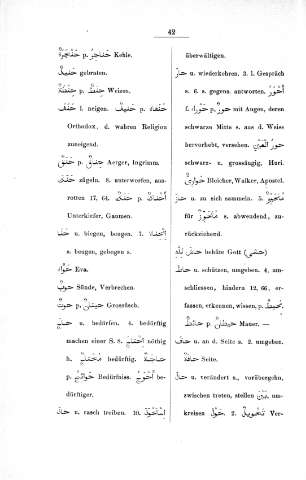 42
حَنْجَرَة p. حَنَاجِرُ Kehle.
حَنِيذٌ gebraten.
حِنْطَة p. حِنَطٌ Weizen.
حَنَفَ i. neigen. حَنِيفٌ p. حُنَفَاءُ
Orthodox, d. wahren Religion
zuneigend.
p. Aerger, Ingrimm.
حَنَكَ zügeln. 8. unterwerfen, aus-
rotten 17, 64. حَنَكٌ p. أَحْنَاكٌ
Unterkiefer, Gaumen.
حَنَا u. biegen, beugen. 7. اِنْحِنَاء
s. beugen, gebogen s.
حَوَّاء Eva.
حُوبٌ Sünde, Verbrechen.
حُوتٌ p. حِيتَانٌ Grossfisch.
u. bedürfen. 4. bedürftig
machen einer S. 8. nöthig
h. مُحْتَاجٌ bedürftig. حَاجَة
p. حَوَائِجُ Bedürfniss. be-
dürftiger.
حَاذَ u. rasch treiben. 10. اِسْتَحْوَذَ
überwältigen.
حَارَ u. wiederkehren. 3. l. Gespräch
s. 6. s. gegens. antworten. أَحْوَرُ
f. حَوْرَاءُ p. حُورٌ mit Augen, deren
schwarzes Mitte s. aus d. Weiss
hervorhebt, versehen. حُورُ الْعِينِ
schwarz- u. grossäugig, Huri.
حَوَارِيٌّ Bleicher, Walker, Apostel.
حَازَ u. zu sich sammeln. 5. مُتَحَيِّزٌ
für s. abwendend, zu-
rückziehend.
حَاشَ لِلّٰهِ behüte Gott
حَاطَ u. schützen, umgeben. 4. um-
schliessen, hindern 12, 66, er-
fassen, erkennen, wissen, p. مُحِيطٌ
حَائِطٌ p حِيطَانٌ Mauer. —
حَافَ u. an d. Seite s. 2. umgeben.
حَافَة Seite.
حَالَ u. verändert s., vorübergehn,
zwischen treten, stellen بَيْنَ, um-
kreisen حَوْلَ. 2. تَحْوِيلٌ Ver-